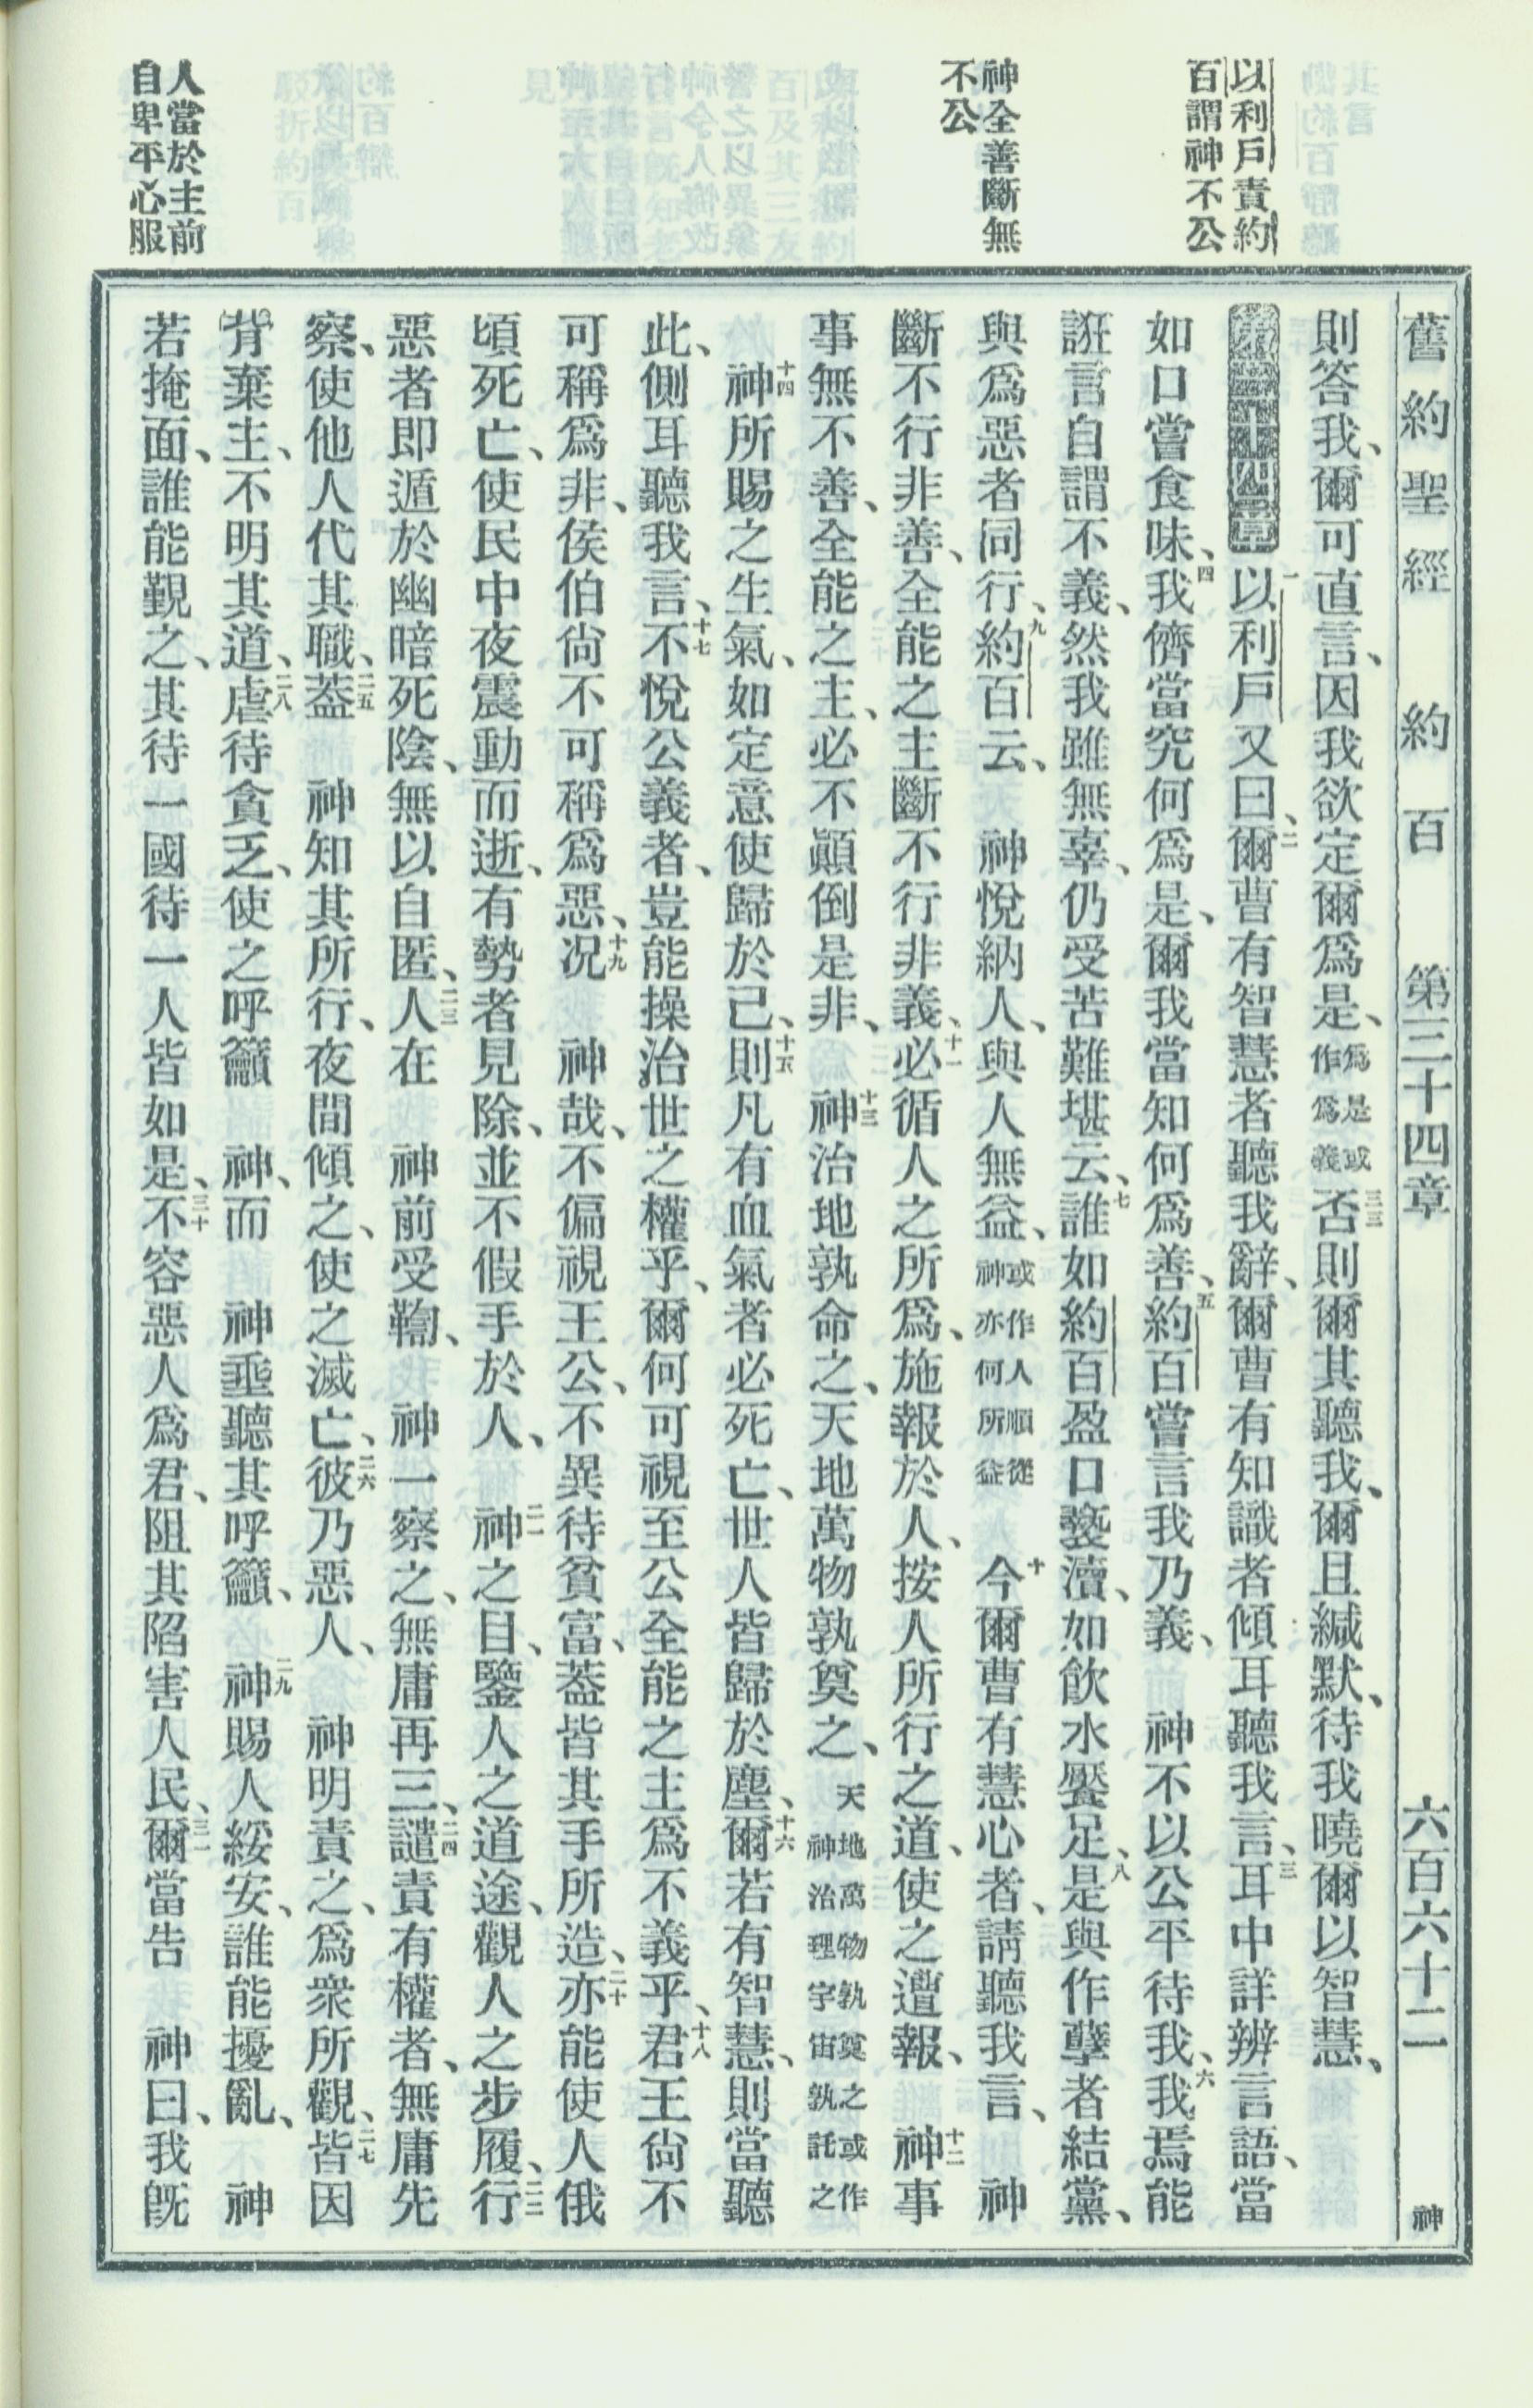 舊約聖經 約百 第三十四章 六百六十二 神
以利戶責約
百謂神不公
神全善斷無
不公
人當於主前
自卑平心服
則答我、爾可直言、因我欲定爾爲是、爲是或作爲義三三否則爾其聽我、爾且緘默、待我曉爾以智慧、
第三十四章一以利戶又曰、二爾曹有智慧者聽我辭、爾曹有知識者傾耳聽我言、三耳中詳辨言語、當
如口嘗食味、四我儕當究何爲是、爾我當知何爲善、五約百嘗言我乃義、 神不以公平待我、六我焉能
誑言自謂不義、然我雖無辜、仍受苦難堪云、七誰如約百盈口褻瀆、如飲水饜足、八是與作孽者結黨、
與爲惡者同行、九約百云、 神悅納人、與人無益、或作人順從神亦何所益十今爾曹有慧心者、請聽我言、 神
斷不行非善、全能之主斷不行非義、十一必循人之所爲、施報於人、按人所行之道、使之遭報、十二神事
事無不善、全能之主、必不顚倒是非、十三神治地孰命之、天地萬物孰奠之、天地萬物孰奠之或作神治理宇宙孰託之
十四神所賜之生氣、如定意使歸於己、十五則凡有血氣者必死亡、世人皆歸於塵、十六爾若有智慧、則當聽
此、側耳聽我言、十七不悅公義者、豈能操治世之權乎、爾何可視至公全能之主爲不義乎、十八君王尙不
可稱爲非、侯伯尙不可稱爲惡、十九况 神哉、不偏視王公、不異待貧富、葢皆其手所造、二十亦能使人俄
頃死亡、使民中夜震動而逝、有勢者見除、並不假手於人、二一神之目、鑒人之道途、觀人之步履、二二行
惡者即遁於幽暗死陰、無以自匿、二三人在 神前受鞫、 神一察之、無庸再三、二四譴責有權者、無庸先
察、使他人代其職、二五葢 神知其所行、夜間傾之、使之滅亡、二六彼乃惡人、 神明責之、爲衆所觀、二七皆因
背棄主、不明其道、二八虐待貪乏、使之呼籲 神、而 神垂聽其呼籲、二九神賜人綏安、誰能擾亂、 神
若掩面、誰能覲之、其待一國待一人皆如是、三十不容惡人爲君、阻其陷害人民、三一爾當告 神曰、我旣